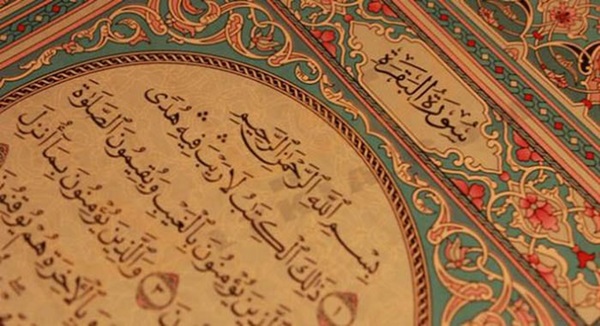 سُورَةُ الْبَقَرَةِ
بِسْمِ اللَّهِ الرَّحْمَٰنِ الرَّحِيمِ
١ ذَٰلِكَ الْكِتَٰبُ لَا رَيْبَ ۛ فِيهِ ۛ هُدًى
الَّذِينَ يُؤْمِنُونَ بِالْغَيْبِ وَيُقِيمُونَ الصَّلَوٰةَ
٣ وَالَّذِينَ يُؤْمِنُونَ بِمَا أُنزِلَ
وَبِالْآخِرَةِ هُمْ يُوقِنُونَ